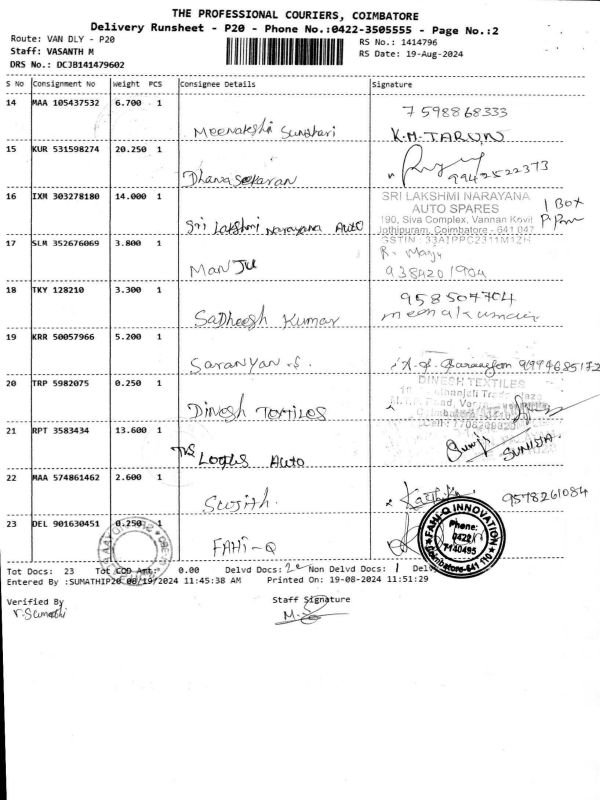 THE PROFESSIONAL COURIERS, COIMBATORE
Delivery Runsheet - P20 - Phone No.:0422-3505555 - Page No.:2
Route: VAN DLY - P20
RS No.: 1414796
Staff: VASANTH M
RS Date: 19-Aug-2024
DRS No.: DCJB141479602
S No Consignment No Weight PCS Consignee Details Signature
14 MAA 105437532 6.700 1
7598868333
Meenakshi Sundhari K.M.TARUN
15 KUR 531598274 20.250 1
Dhanasekaran 9942522373
16 IXM 303278180 14.000 1
SRI LAKSHMI NARAYANA
AUTO SPARES
1 Box
190, Siva Complex, Vannan Kovil
Sri Lakshmi Narayana Auto
Jothipuram, Coimbatore - 641 047
GSTIN : 33AIPPC2311M1ZH
17 SLM 352676069 3.800 1
Manju
9384201904
18 TKY 128210 3.300 1
958504704
Sadheesh Kumar
meenakumari
19 KRR 50057966 5.200 1
Saranyan .S. 9994685172
20 TRP 5982075 0.250 1
DINESH TEXTILES
Dinesh Textiles
21 RPT 3583434 13.600 1
TVS Lotus Auto
SUNITA
22 MAA 574861462 2.600 1
Sujith. 9578261084
23 DEL 901630451 0.250 1
FAHI-Q
FAHI-Q INNOVATION
Phone:
0422
7140495
Coimbatore-641 110
Tot Docs: 23 Tot COD Amt: 0.00 Delvd Docs: Non Delvd Docs: 1
Entered By :SUMATHIP20 08/19/2024 11:45:38 AM Printed On: 19-08-2024 11:51:29
Verified By Staff Signature